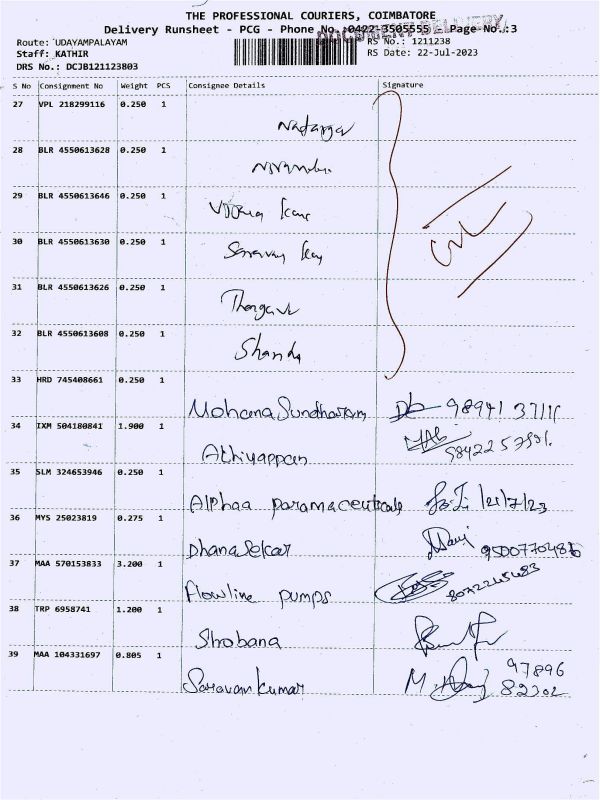 THE PROFESSIONAL COURIERS, COIMBATORE
Delivery Runsheet - PCG - Phone No.:0422-3505555 Page No.:3
DOCUMENT DELIVERY
Route: UDAYAMPALAYAM RS No.: 1211238
Staff: KATHIR RS Date: 22-Jul-2023
DRS No.: DCJB121123803
S No Consignment No Weight PCS Consignee Details Signature
27 VPL 218299116 0.250 1
28 BLR 4550613628 0.250 1
29 BLR 4550613646 0.250 1
30 BLR 4550613630 0.250 1
31 BLR 4550613626 0.250 1
32 BLR 4550613608 0.250 1
33 HRD 745408661 0.250 1
Mohana Sundharam
34 IXM 504180841 1.900 1
Athiyappan
35 SLM 324653946 0.250 1
Alphaa paramaceuticals 21/7/23
36 MYS 25023819 0.275 1
Dhana Sekar 9500770486
37 MAA 570153833 3.200 1
Flowline pumps 8072245483
38 TRP 6958741 1.200 1
Shobana
39 MAA 104331697 0.805 1
97896
Saravan kumar 82302